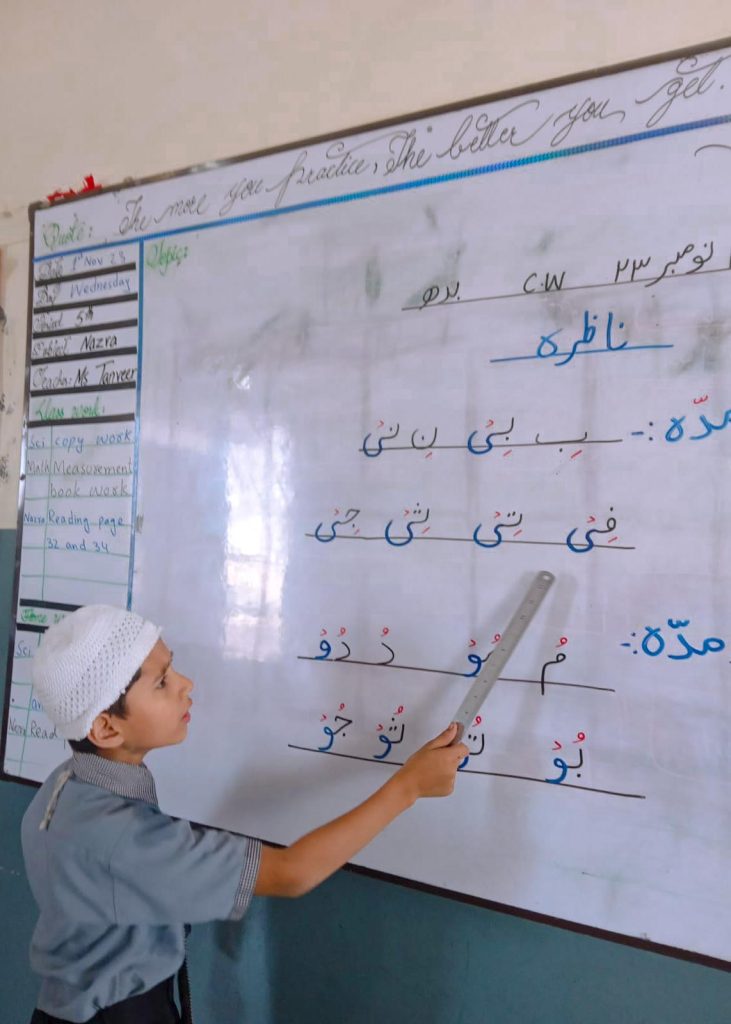 Quote: The more you practice, the better you get.
Date 1st Nov 23
Day Wednesday
Period 5th
Subject Nazra
Teacher: Ms Tanveer
Class work:
Sci copy work
Math Measurement
book work
Nazra Reading page
32 and 34
Sci
Nazra Read
Topic:
نومبر ۲۳ C.W بدھ
ناظرہ
مدّہ :- بِ بِىْ نِ نِىْ
فِىْ تِىْ ثِىْ جِىْ
مدّہ :- مُ مُوْ دُ دُوْ
بُوْ تُوْ ثُوْ جُوْ